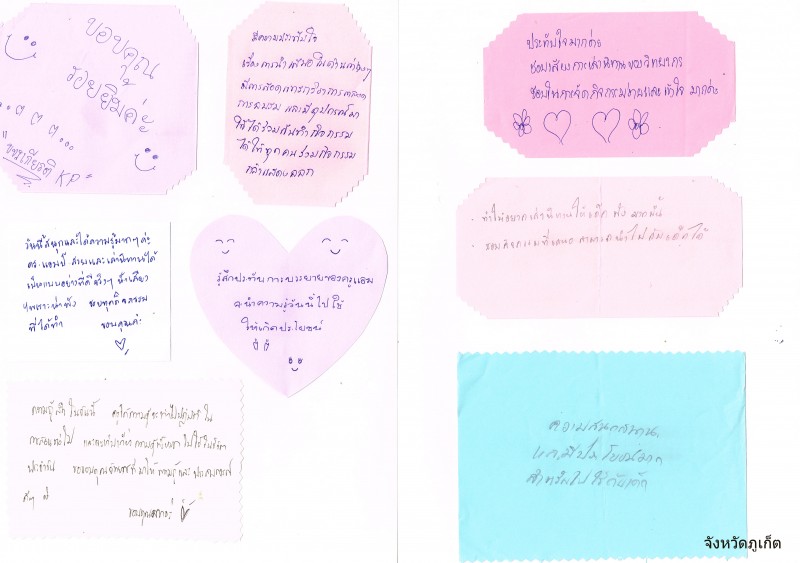 ขอบคุณ
ร้อยยิ้มค่ะ
KP"
มีความประทับใจ
เรื่องการนำเสนอในด้านต่างๆ
และมีอุปกรณ์มา
ให้ได้ร่วมกันทำกิจกรรม
ได้ให้ทุกคนร่วมกิจกรรม
กล้าแสดงออก
ประทับใจมากค่ะ
ชอบเสียงการเล่านิทานของวิทยากร
ชอบในการจัดกิจกรรมง่ายและเข้าใจ มากค่ะ
- ทำให้อยากเล่านิทานให้เด็ก ฟัง มากขึ้น
- ชอบกิจกรรมที่เสนอ สามารถนำไปใช้กับเด็กได้
วันนี้สนุกและได้ความรู้มากๆค่ะ
ดร.แอมป์ สวยและเล่านิทานได้
เป็นแบบอย่างที่ดีจริงๆ น้ำเสียง
ไพเราะน่าฟัง ชอบทุกกิจกรรม
ที่ได้ทำ ขอบคุณค่ะ
รู้สึกประทับใจการบรรยายของครูแอม
จะนำความรู้วันนี้ไปใช้
ให้เกิดประโยชน์
ความรู้สึกในวันนี้
การสอนต่อไป
ประจำวัน ขอขอบคุณอาจารย์ที่มาให้ความรู้และประสบการณ์
ดีๆ
ขอบคุณมากค่ะ
ความสนุกสนาน
และมีประโยชน์มาก
สำหรับไปใช้กับเด็ก
จังหวัดภูเก็ต